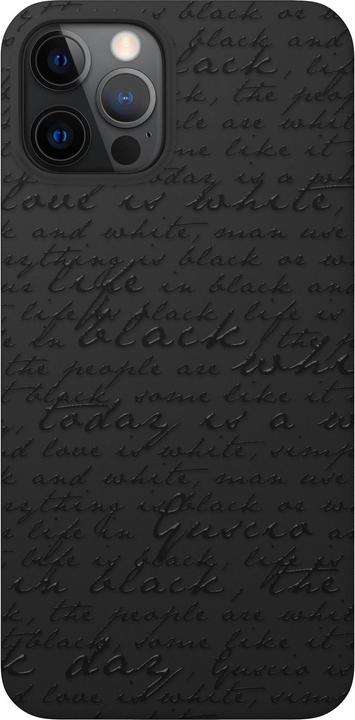 black or w
black and
black, life
k, the peop
le are white
me like it
today is a wh
love is white,
k and white, man use
rything is black or w
ur life in black and
t life is black, life is
e in black, the p
the people are whi
t black, some like it
k, today is a w
d love is white, simp
k and white, man use
rything is black or w
r life in Guscio an
, life is black, life is
in black, the
k, the people are whit
t black, some like it
k day, Guscio is
d love is white, simp